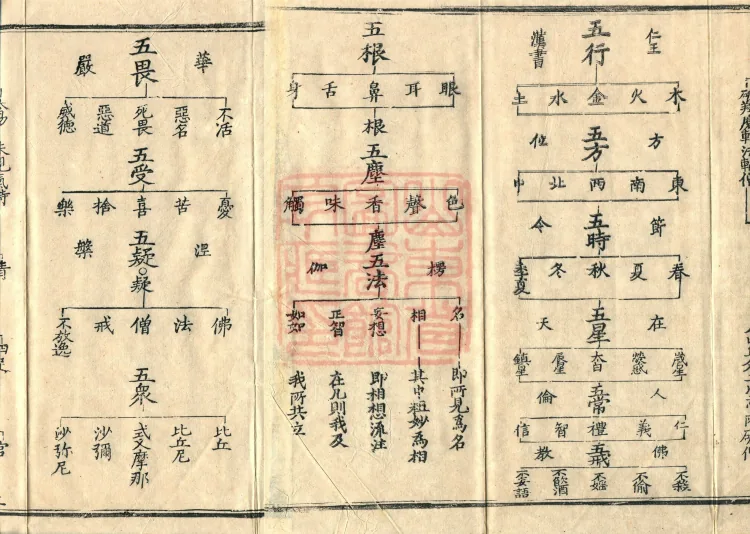 仁王 五行 漢書
木 火 金 水 土
方 五方 位
東 南 西 北 中
節 五時 令
春 夏 秋 冬 季夏
在 五星 天
歲星 熒惑 太白 辰星 鎮星
人 五常 倫
仁 義 禮 智 信
佛 五戒 教
不殺 不偷 不婬 不飲酒 不妄語
五根
眼 耳 鼻 舌 身
根
五塵
色 聲 香 味 觸
塵
楞 五法 伽
名 相 妄想 正智 如如
即所見為名
其中粗妙為相
即相想流注
在凡則我及
我所共立
華 五畏 嚴
不活 惡名 死畏 惡道 威德
五受
憂 苦 喜 捨 樂
涅 五疑 槃
疑
佛 法 僧 戒 不放逸
五眾
比丘 比丘尼 式叉摩那 沙彌 沙弥尼